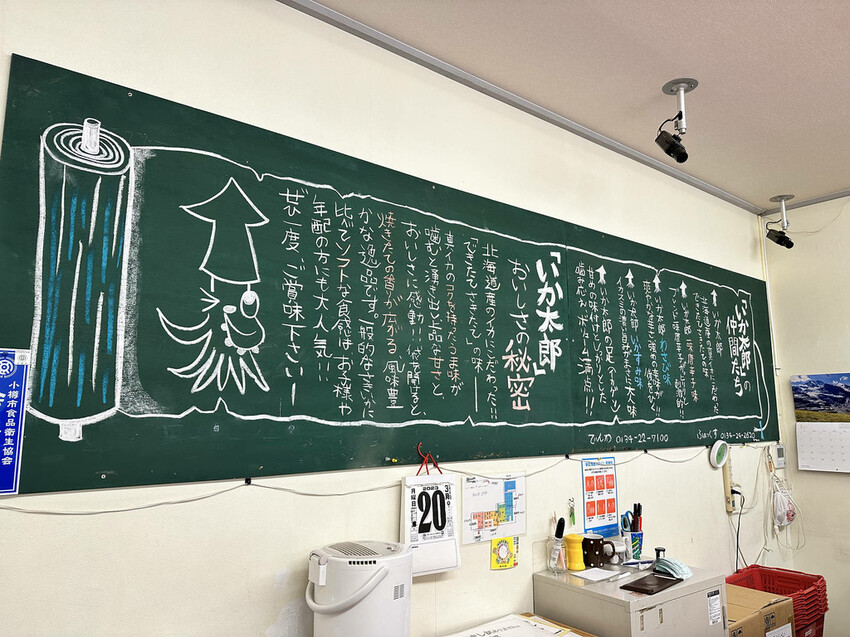 「いか太郎」の
仲間たち
↑いか太郎
北海道産の原料にこだわった
↑いか太郎
↑いか太郎 わさび味
↑いか太郎 いかすみ味
イカスミの濃い旨みがまさに大人味
↑いか太郎の足(イカゲソ)
甘めの味付けとしっかりとした
噛み応えボリューム満点!!
「いか太郎」
おいしさの秘密
北海道産のイカにこだわった!!
の味
真イカのコクを持ったうま味が
噛むと湧き出る上品な甘さと、
おいしさに感動!!袋を開けると、
焼きたての香りが広がる、風味豊
かな逸品です。一般的なさきいかに
比べてソフトな食感はお子様や
年配の方にも大人気!!
ぜひ一度、ご賞味下さい
でんわ 0134-22-7100 ふぁっくす 0134-24-2620
小樽市食品衛生協会
2023
3月
20
月曜日